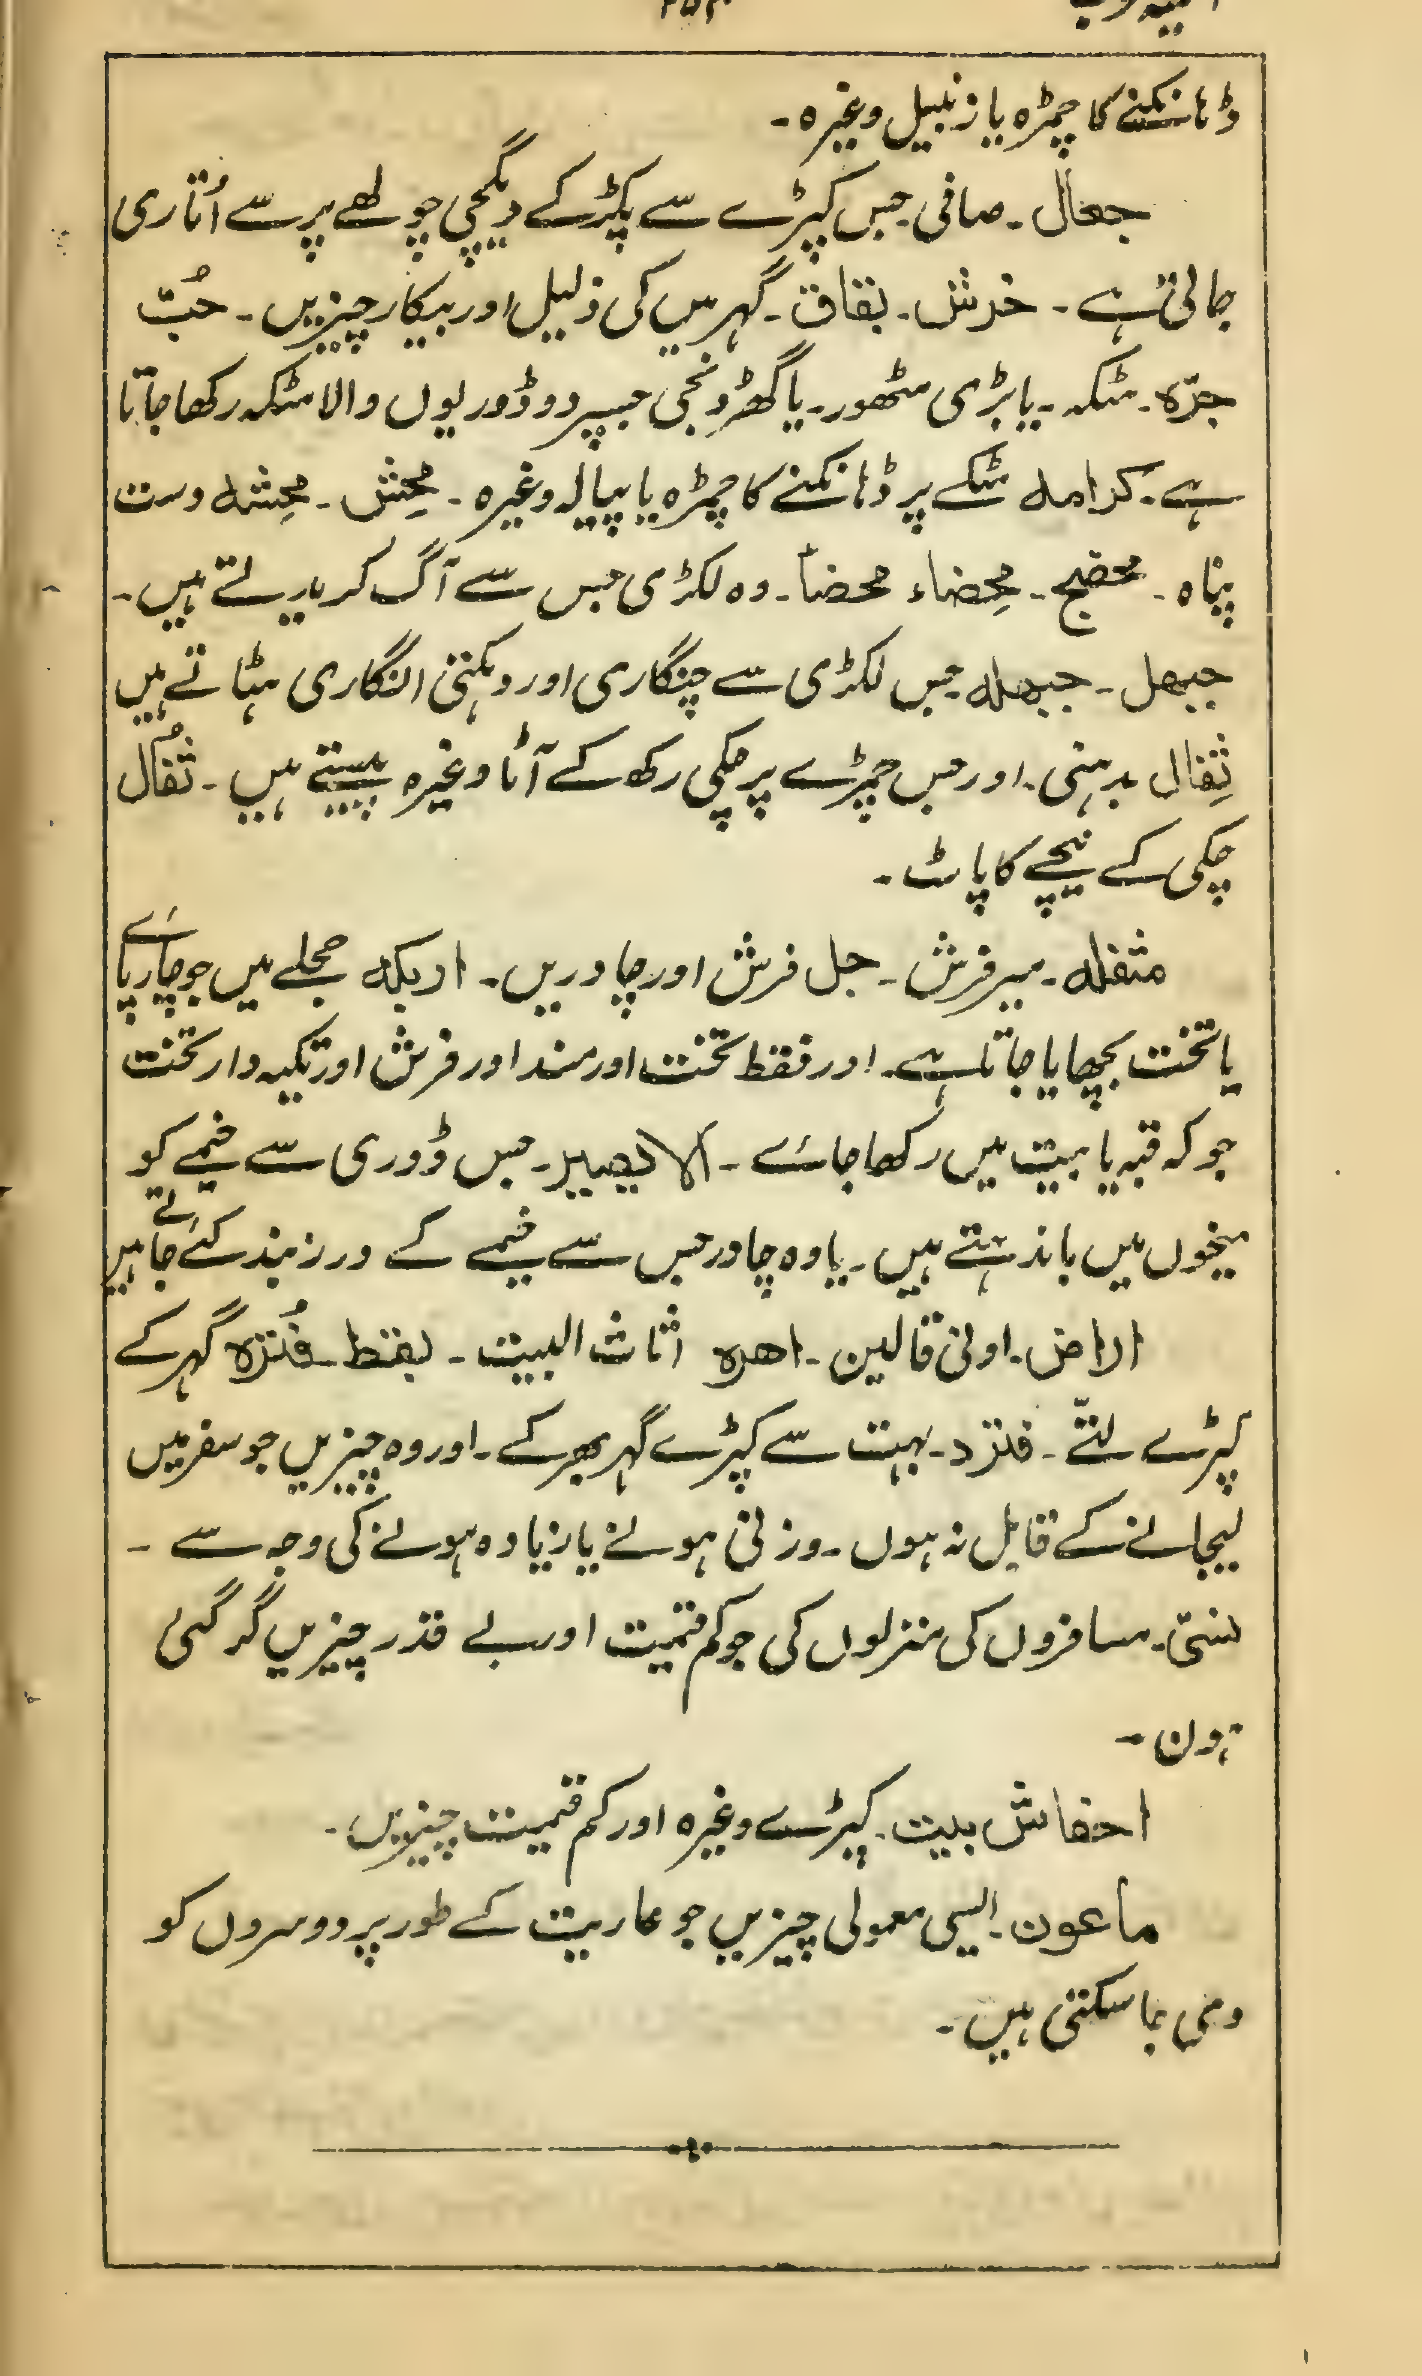 ڈہانکنے کا چمڑہ یا زنبیل وغیرہ۔
جعال۔ صافی جس کپڑے سے پکڑ کے دیگچی چولھے پر سے اُتاری
جاتی ہے۔ خرش۔ بقاق۔ گہر میں کی ذلیل اور بیکار چیزیں۔ حُبّ
جرّہ۔ مٹکہ۔ یا بڑی مٹھور۔ یا گھڑونچی جسپر دو ڈوریوں والا مٹکہ رکھا جاتا
ہے۔ کرامہ مٹکے پر ڈہانکنے کا چمڑہ یا پیالہ وغیرہ۔ مِحَش۔ مِحِشہ دست
پناہ۔ محضج۔ مِحضاء محضأ۔ وہ لکڑی جس سے آگ کریدتے ہیں۔
جیھل۔ جیھلہ جس لکڑی سے چنگاری اور دہکتی انگاری ہٹاتے ہیں
ثِفال بدہنی۔ اور جس چمڑے پر چکی رکھ کے آٹا وغیرہ پیستے ہیں۔ ثُفال
چکی کے نیچے کا پاٹ۔
مثقلہ۔ میر فرش۔ جل فرش اور چادریں۔ اریکہ حجلے میں جو چارپائے
یا تخت بچھایا جاتا ہے۔ اور فقط تخت اور مسند اور فرش اور تکیہ دار تخت
جو کہ قبہ یا بیت میں رکھا جائے۔ الایصیر۔ جس ڈوری سے خیمے کو
میخوں میں باندہتے ہیں۔ یا وہ چادر جس سے خیمے کے درز بند کئے جاتے ہیں
اراض۔ اونی قالین۔ اھرہ اثاث البیت۔ بقط۔ قُثرہ گہر کے
کپڑے لتّے۔ قثرد۔ بہت سے کپڑے گہر بھر کے۔ اور وہ چیزیں جو سفر میں
لیجانے کے قابل نہ ہوں۔ وزنی ہونے یا زیادہ ہونے کی وجہ سے۔
مسافروں کی منزلوں کی جو کم قیمت اور بے قدر چیزیں گر گئی
ہون۔
احفاش بیت۔ کپڑے وغیرہ اور کم قیمت چیزیں۔
ماعون۔ ایسی معمولی چیزیں جو عاریت کے طور پر دوسروں کو
دی جا سکتی ہیں۔